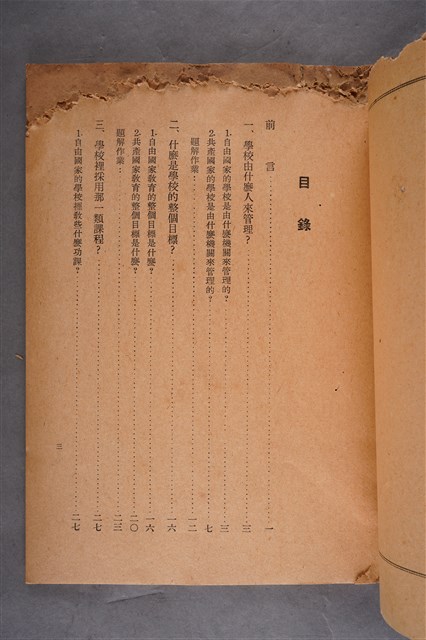 目錄
前言……一
一、學校由什麼人來管理？……三
1.自由國家的學校是由什麼機關來管理的？……三
2.共產國家的學校是由什麼機關來管理的？……七
題解作業：……一二
二、什麼是學校的整個目標？……一六
1.自由國家教育的整個目標是什麼？……一六
2.共產國家教育的整個目標是什麼？……二〇
題解作業：……二三
三、學校裡採用那一類課程？……二七
1.自由國家的學校裡教些什麼功課？……二七
三